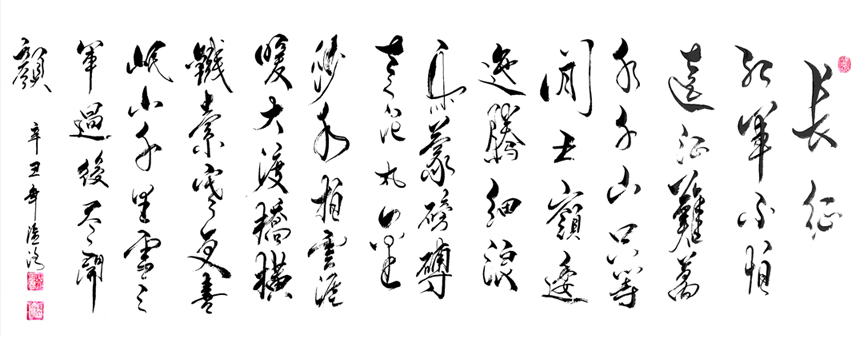 長征
紅軍不怕
遠征難萬
水千山只等
閒五嶺逶
迤騰細浪
烏蒙磅礴
走泥丸金
沙水拍雲崖
暖大渡橋橫
鐵索寒更喜
岷山千里雪三
軍過後盡開
顏
辛丑年